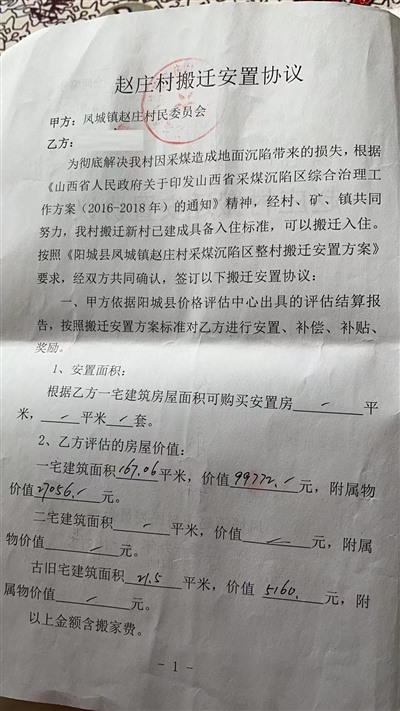 赵庄村搬迁安置协议
甲方：凤城镇赵庄村民委员会
乙方：
为彻底解决我村因采煤造成地面沉陷带来的损失，根据
《山西省人民政府关于印发山西省采煤沉陷区综合治理工
作方案（2016-2018年）的通知》精神，经村、矿、镇共同
努力，我村搬迁新村已建成具备入住标准，可以搬迁入住。
按照《阳城县凤城镇赵庄村采煤沉陷区整村搬迁安置方案》
要求，经双方共同确认，签订以下搬迁安置协议：
一、甲方依据阳城县价格评估中心出具的评估结算报
告，按照搬迁安置方案标准对乙方进行安置、补偿、补贴、
奖励。
1、安置面积：
根据乙方一宅建筑房屋面积可购买安置房 / 平
米， / 平米 / 套。
2、乙方评估的房屋价值：
一宅建筑面积167.06平米，价值99772./元，附属物
价值27056./元。
二宅建筑面积 / 平米，价值 / 元，附属
物价值 / 元。
古旧宅建筑面积 21.5 平米，价值 5160. 元，附
属物价值 / 元。
以上金额含搬家费。
- 1 -